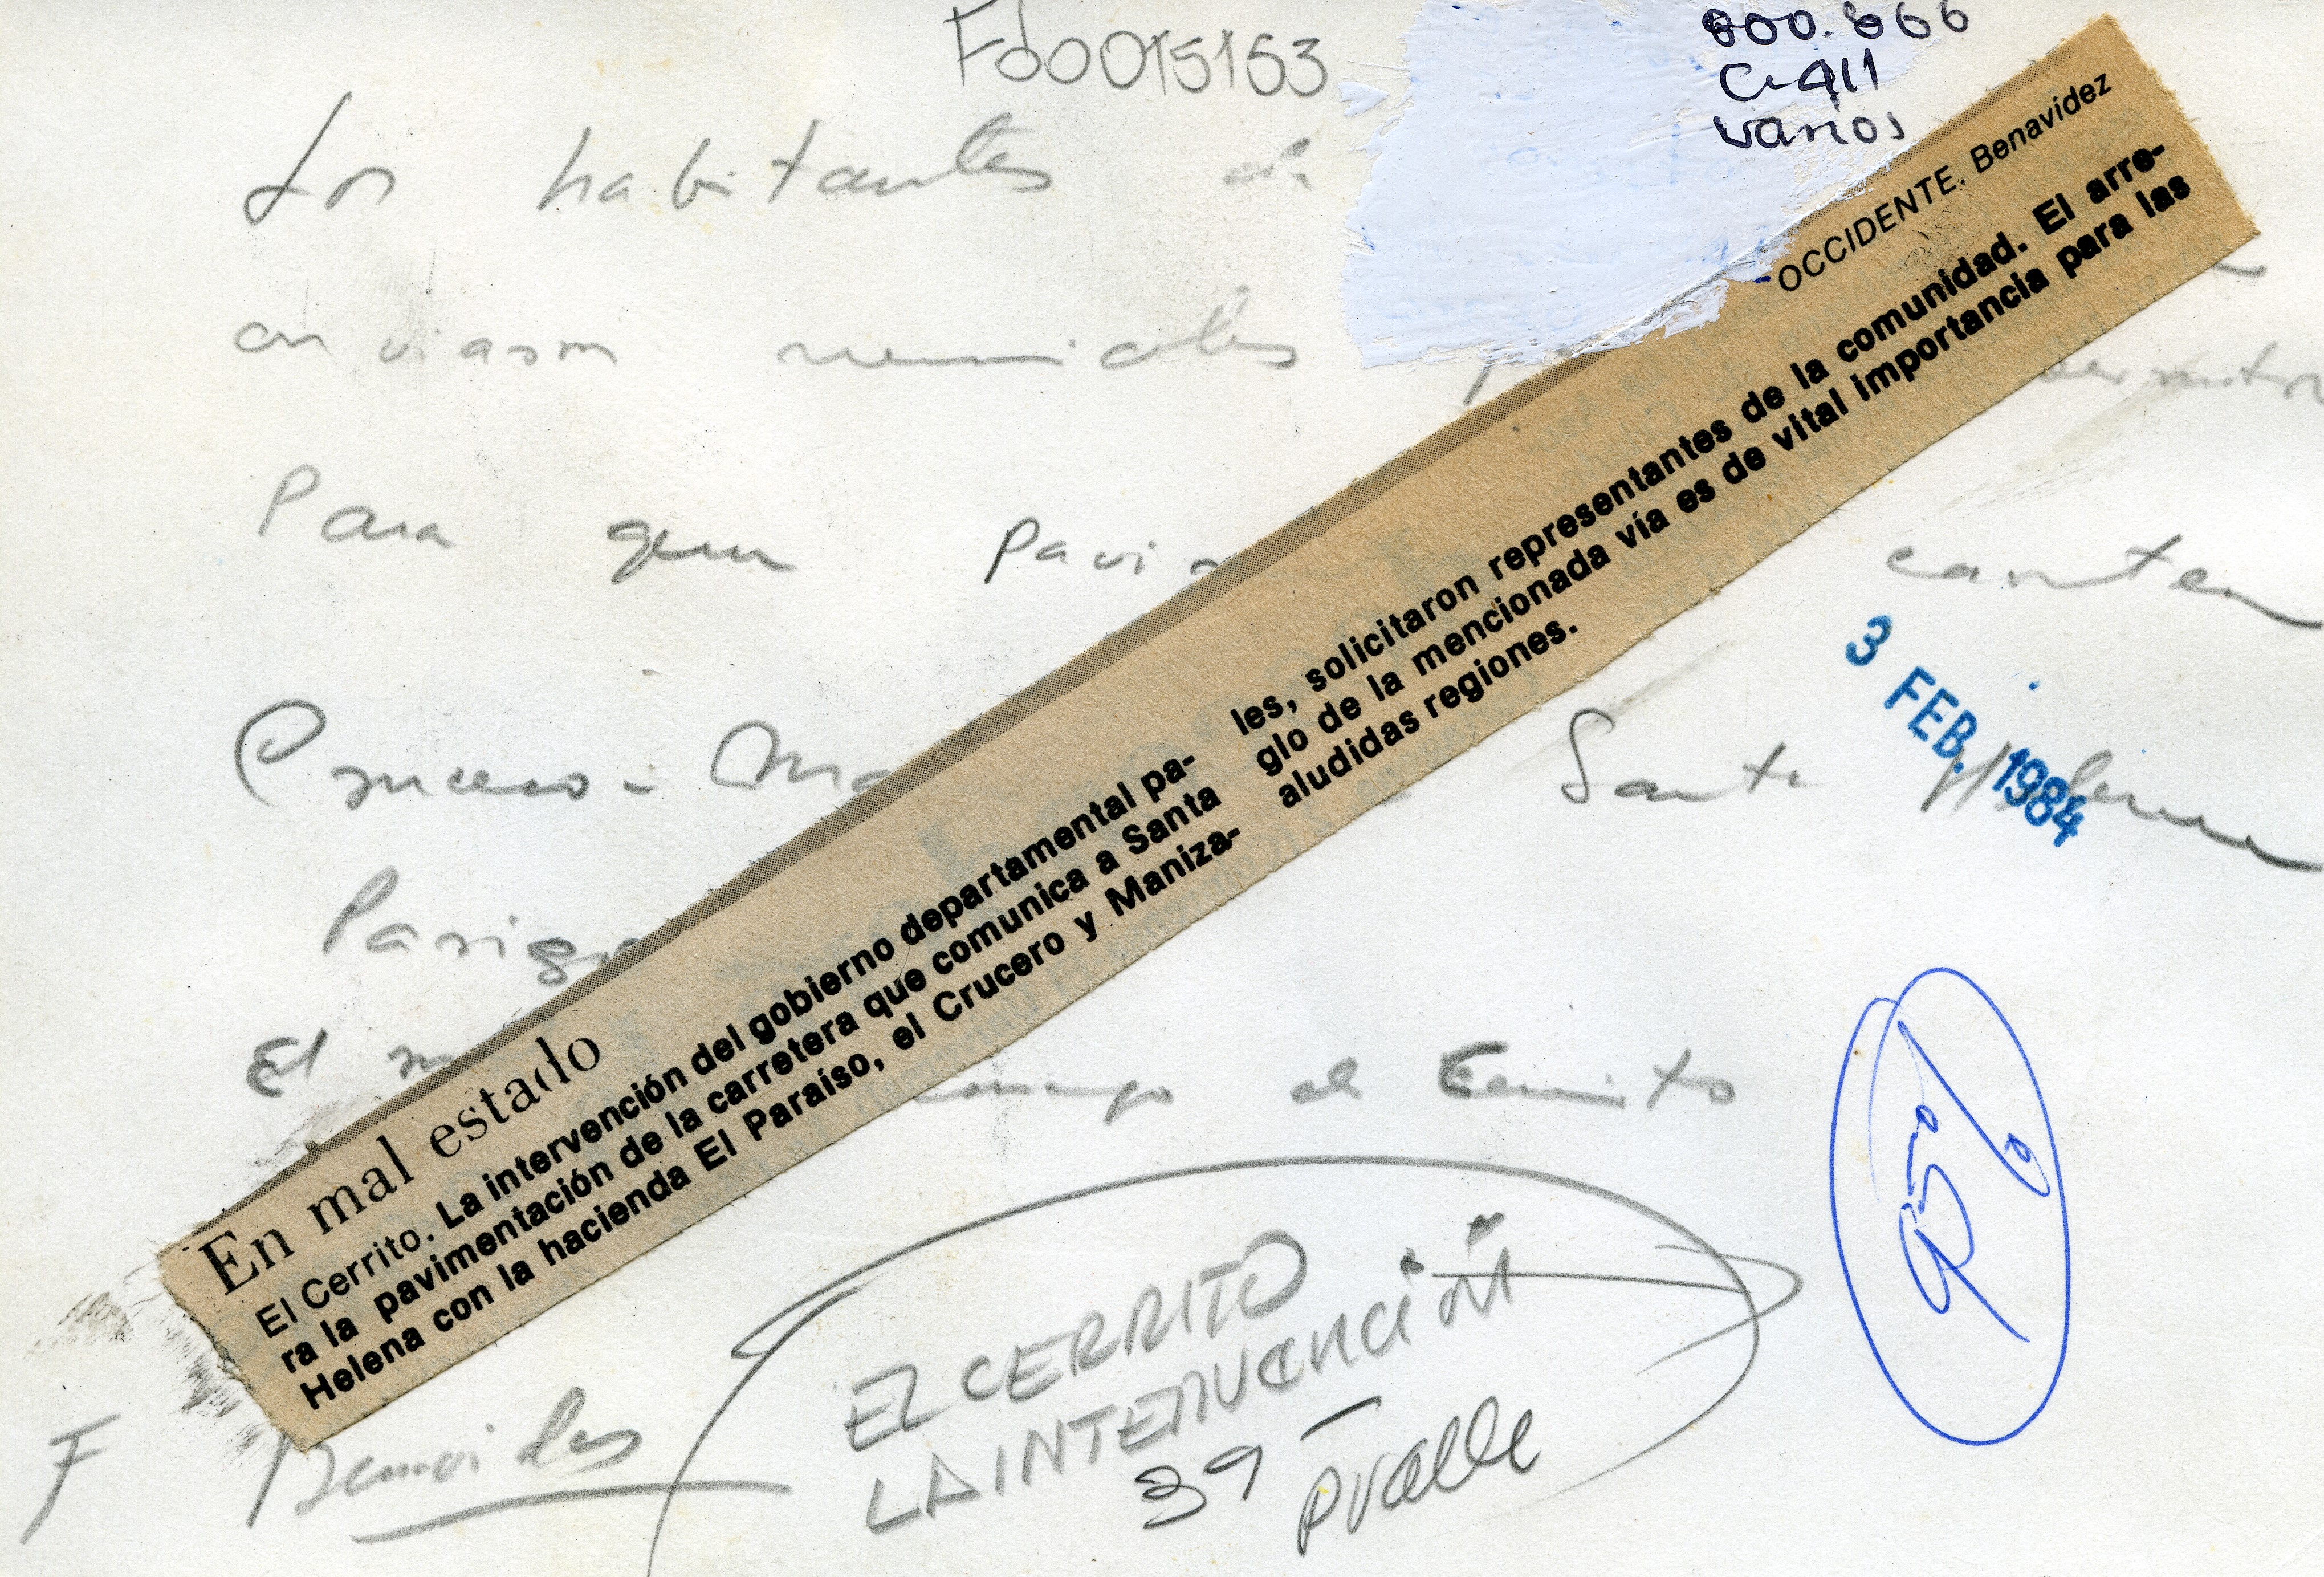 Fd0015163
000.866
C-411
varios
Los habitantes
enviaron memoriales
Para que pavi
carrete
Crucero - Ma
Santa Helena
3 FEB. 1984
El
al Cerrito
OCCIDENTE, Benavidez
En mal estado
El Cerrito. La intervención del gobierno departamental pa-
ra la pavimentación de la carretera que comunica a Santa
Helena con la hacienda El Paraíso, el Crucero y Maniza-
les, solicitaron representantes de la comunidad. El arre-
glo de la mencionada vía es de vital importancia para las
aludidas regiones.
F Benavides
EL CERRITO
LA INTERVENCIÓN
39
PValle